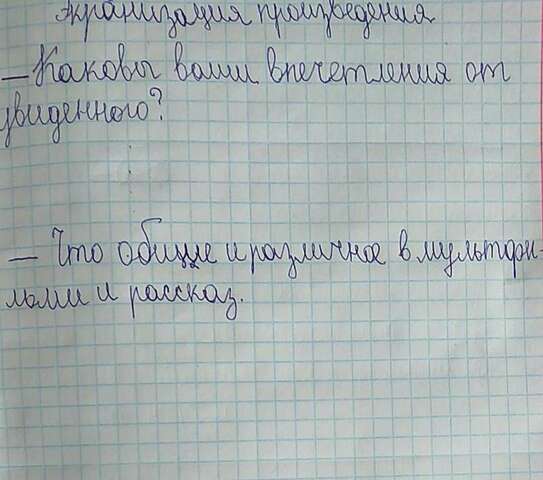 Экранизация произведения
— Каковы ваши впечетления от
увиденного?
— Что общие и различное в мультфи-
льми и рассказ.